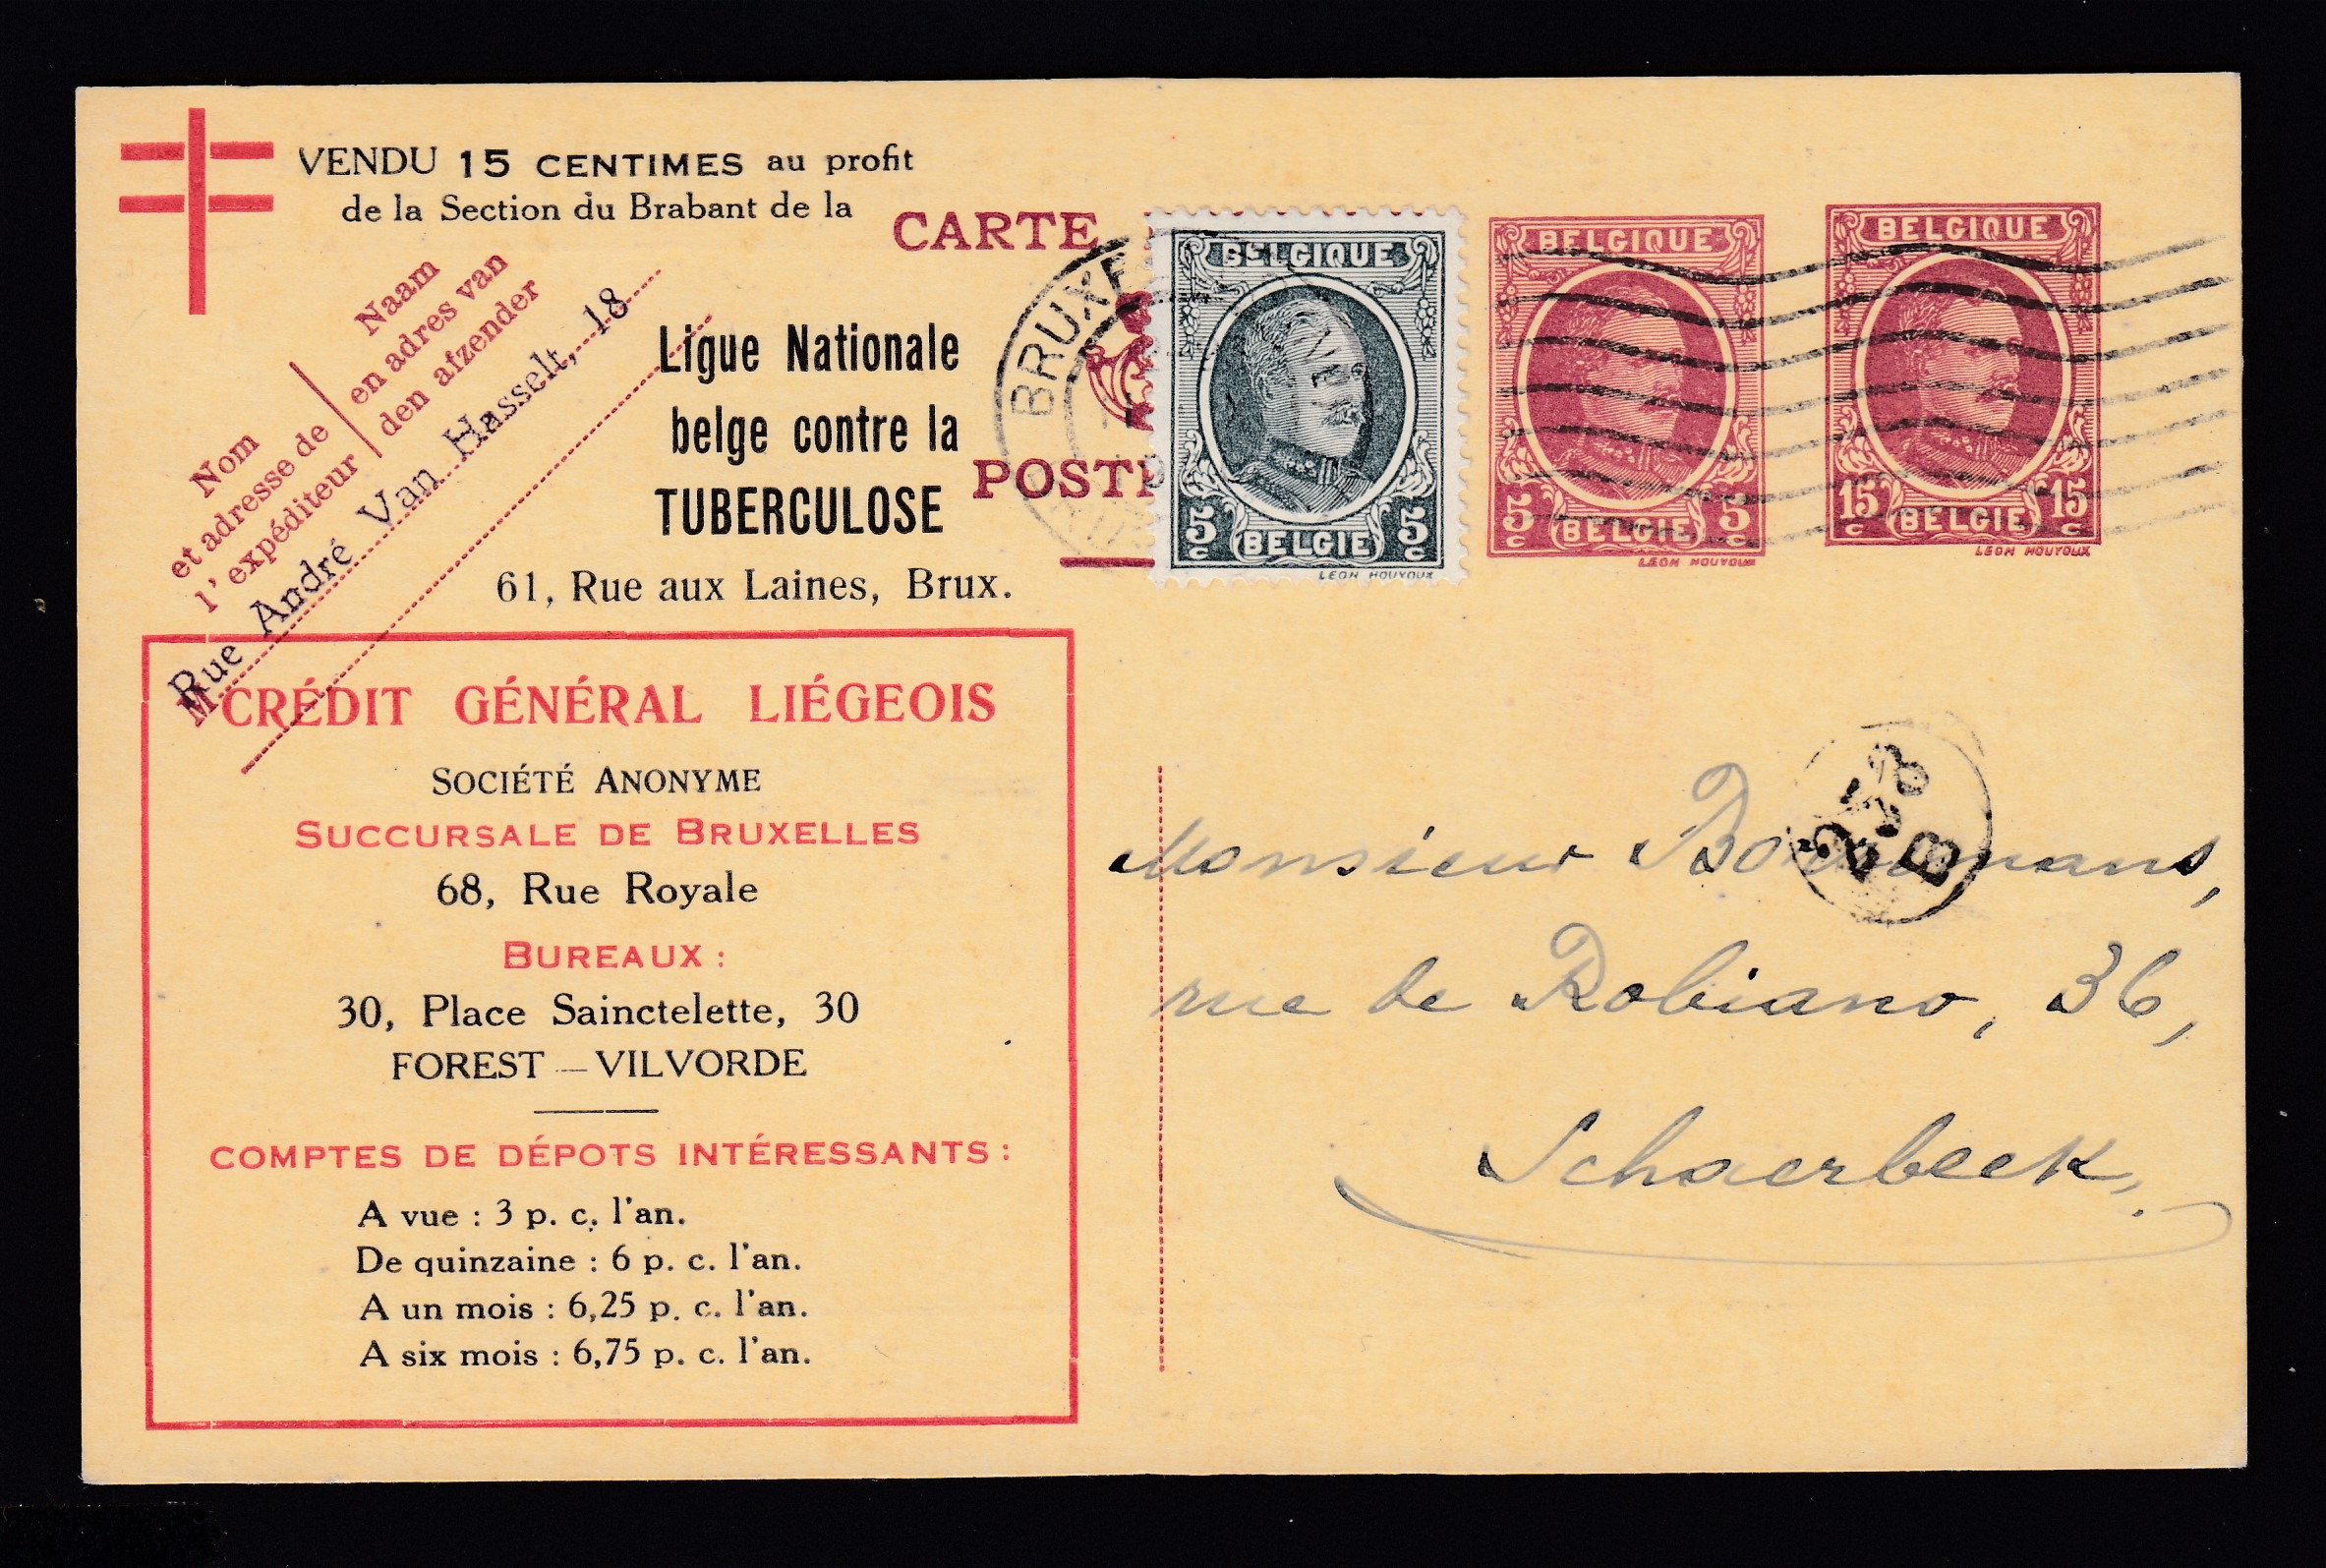 VENDU 15 CENTIMES au profit
de la Section du Brabant de la
Ligue Nationale
belge contre la
TUBERCULOSE
61, Rue aux Laines, Brux.
CARTE
POSTE
BRUXE
Naam
en adres van
den afzender
Nom
et adresse de
l'expéditeur
Rue André Van Hasselt, 18
M
BELGIQUE
5c 5c
BELGIË
LEON HOUYOUX
BELGIQUE
5c 5c
BELGIË
LEON HOUYOUX
BELGIQUE
15c 15c
BELGIË
LEON HOUYOUX
CRÉDIT GÉNÉRAL LIÉGEOIS
SOCIÉTÉ ANONYME
SUCCURSALE DE BRUXELLES
68, Rue Royale
BUREAUX :
30, Place Sainctelette, 30
FOREST — VILVORDE
COMPTES DE DÉPOTS INTÉRESSANTS :
A vue : 3 p. c. l'an.
De quinzaine : 6 p. c. l'an.
A un mois : 6,25 p. c. l'an.
A six mois : 6,75 p. c. l'an.
B
Monsieur
rue de Robiano, 36,
Schaerbeek.